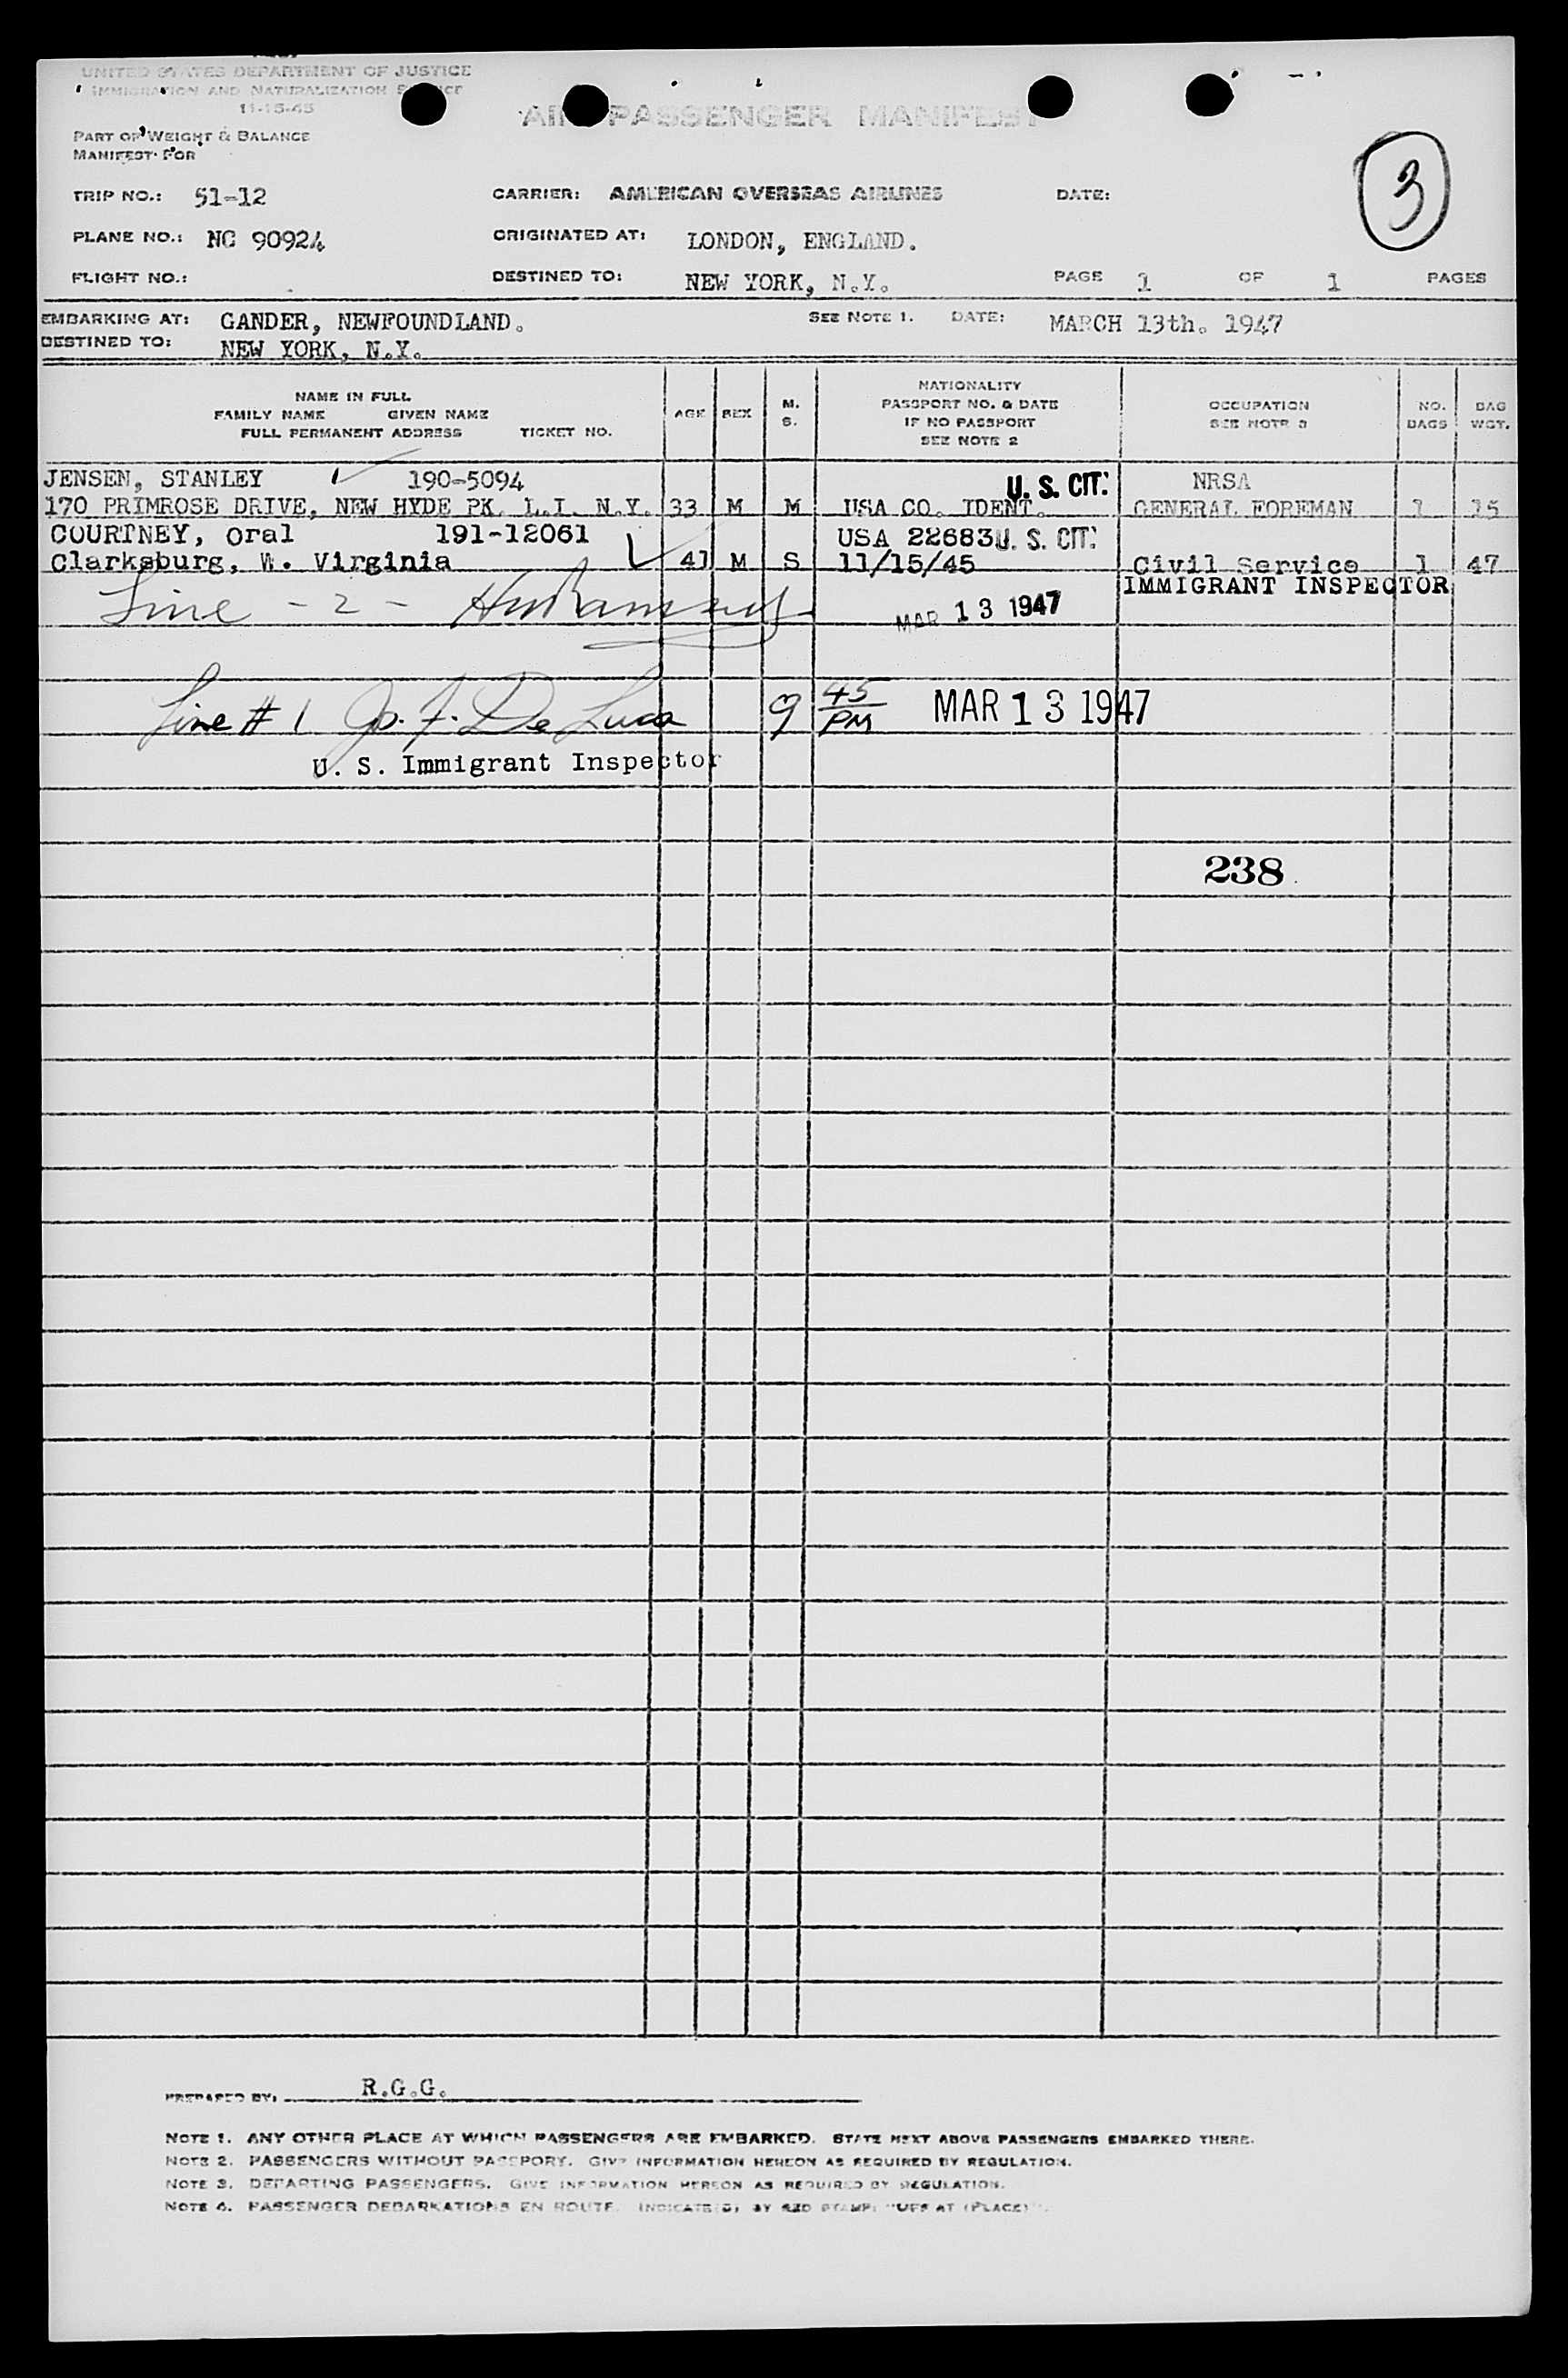 UNITED STATES DEPARTMENT OF JUSTICE
IMMIGRATION AND NATURALIZATION SERVICE
11-15-45
AIR PASSENGER MANIFEST
PART OF WEIGHT & BALANCE
MANIFEST FOR
3
TRIP NO.: 51-12 CARRIER: AMERICAN OVERSEAS AIRLINES DATE:
PLANE NO.: NC 90924 ORIGINATED AT: LONDON, ENGLAND.
FLIGHT NO.: DESTINED TO: NEW YORK, N.Y. PAGE 1 OF 1 PAGES
EMBARKING AT: GANDER, NEWFOUNDLAND. SEE NOTE 1. DATE: MARCH 13th. 1947
DESTINED TO: NEW YORK, N.Y.
NAME IN FULL
FAMILY NAME GIVEN NAME
FULL PERMANENT ADDRESS TICKET NO.
AGE SEX M. S.
NATIONALITY
PASSPORT NO. & DATE
IF NO PASSPORT
SEE NOTE 2
OCCUPATION
SEE NOTE 3
NO. BAGS
BAG WGT.
JENSEN, STANLEY 190-5094 U. S. CIT. NRSA
170 PRIMROSE DRIVE, NEW HYDE PK. L.I. N.Y. 33 M M USA CO. IDENT. GENERAL FOREMAN 1 15
COURTNEY, Oral 191-12061 USA 22683 U. S. CIT.
Clarksburg, W. Virginia 41 M S 11/15/45 Civil Service 1 47
IMMIGRANT INSPECTOR
Line - 2 - MAR 13 1947
Line # 1 Jo. F. De Luca 9 45 PM MAR 13 1947
U. S. Immigrant Inspector
238
PREPARED BY: R.G.G.
NOTE 1. ANY OTHER PLACE AT WHICH PASSENGERS ARE EMBARKED. STATE NEXT ABOVE PASSENGERS EMBARKED THERE.
NOTE 2. PASSENGERS WITHOUT PASSPORT. GIVE INFORMATION HEREON AS REQUIRED BY REGULATION.
NOTE 3. DEPARTING PASSENGERS. GIVE INFORMATION HEREON AS REQUIRED BY REGULATION.
NOTE 4. PASSENGER DEBARKATIONS EN ROUTE. INDICATE(D) BY RED STAMP: "OFF AT (PLACE)".